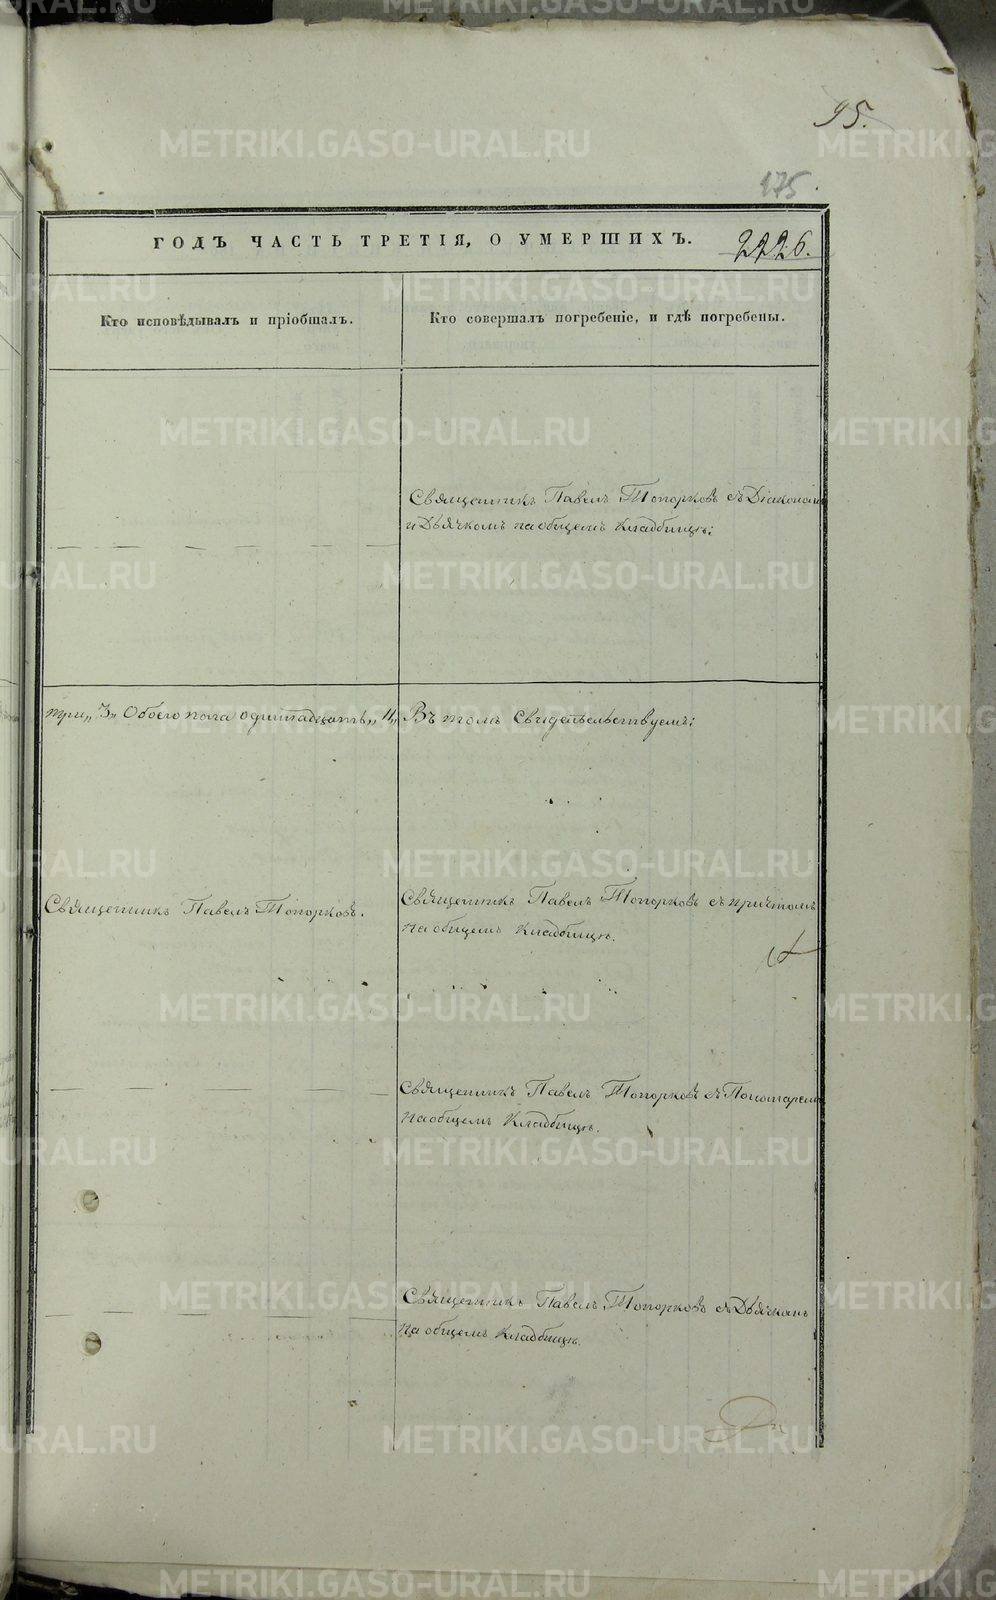 95.
175.
ГОДЪ ЧАСТЬ ТРЕТІЯ, О УМЕРШИХЪ.
2226.
Кто исповѣдывалъ и пріобщалъ.
Кто совершалъ погребеніе, и гдѣ погребены.
Священникъ Павелъ Топорковъ съ Діакономъ
и Дьячкомъ на общемъ кладбищѣ;
три„ 3„ Обоего пола одиннадцать„ 11„
Въ томъ Свидѣтельствуемъ:
Священникъ Павелъ Топорковъ.
Священникъ Павелъ Топорковъ съ причтомъ
на общемъ кладбищѣ.
Священникъ Павелъ Топорковъ съ Пономаремъ
на общемъ кладбищѣ.
Священникъ Павелъ Топорковъ съ Дьячкомъ
на общемъ кладбищѣ.
METRIKI.GASO-URAL.RU